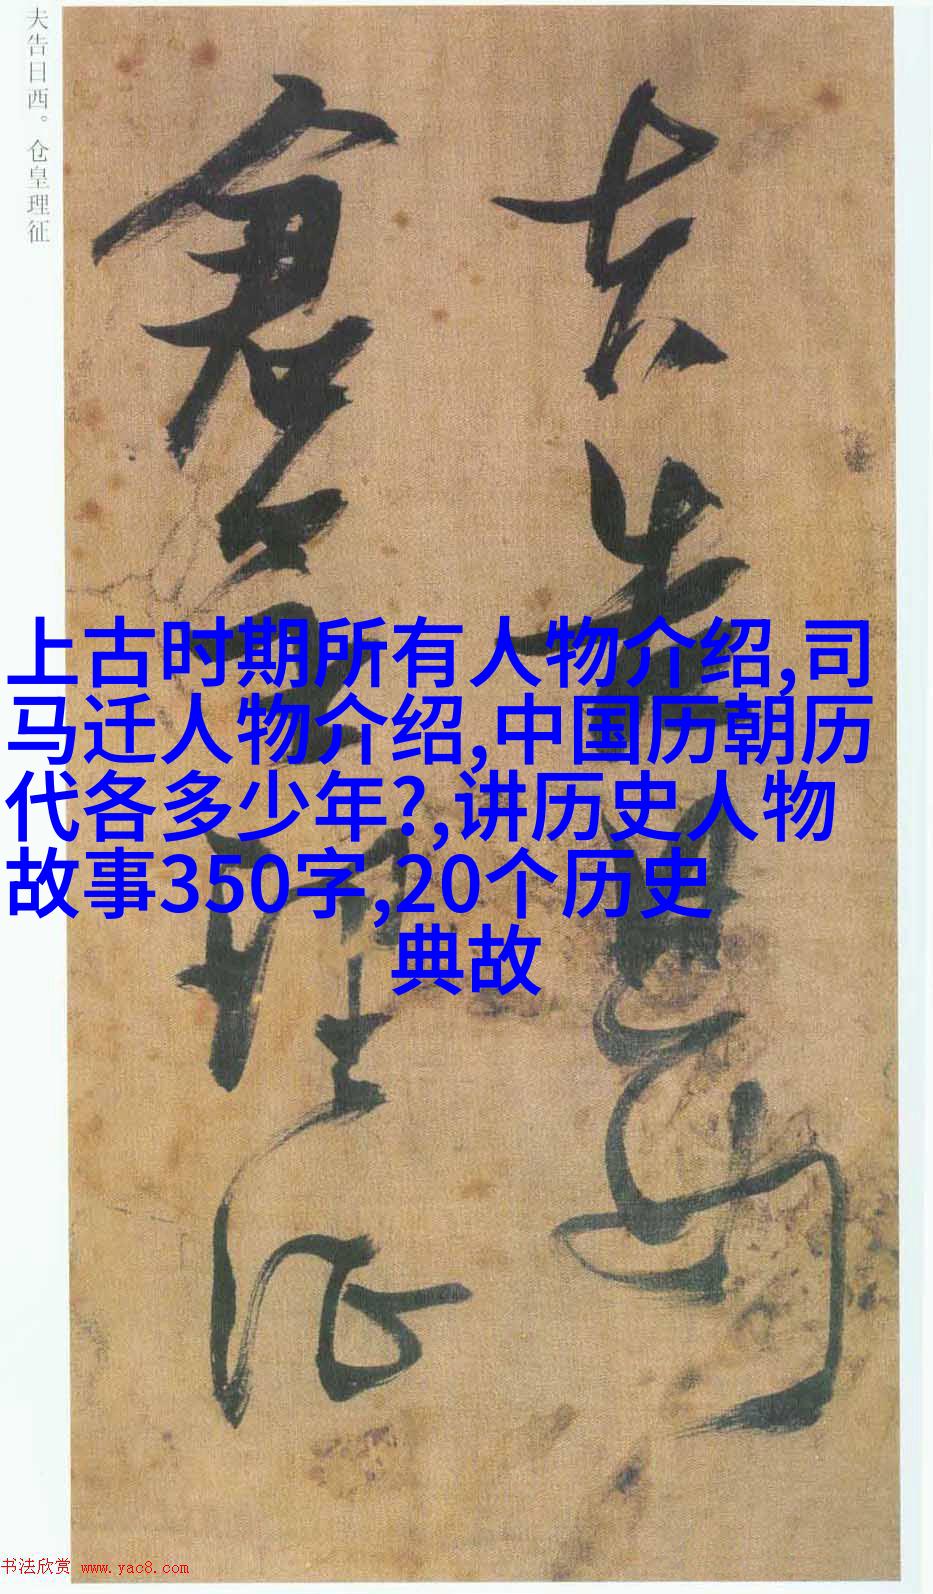 夫告日西。仓皇理征
夫告日西
仓皇理征
上古时期所有人物介绍,司
马迁人物介绍,中国历朝历
代各多少年?,讲历史人物
故事350字,20个历史
典故
书法欣赏 www.yac8.com